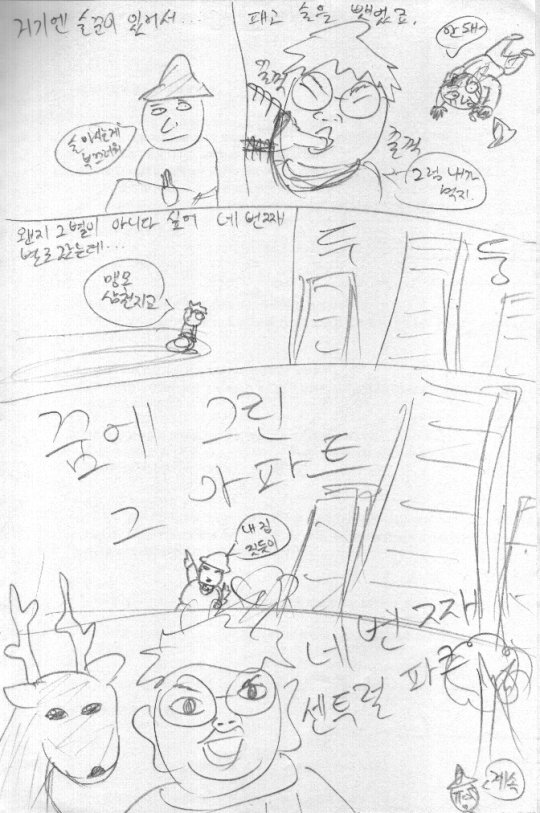 거기엔 술꾼이 있어서...
술 마시는게
부끄러워
패고 술을 뺏었죠.
안돼
꿀꺽
꿀꺽
그럼 내가
먹지.
왠지 그 별이 아니다 싶어 네 번째
별로 갔는데...
맹모
삼천지교
두 둥
꿈에 그린
그 아파트
내 집
짓듯이
네 번째
센트럴 파크
계속